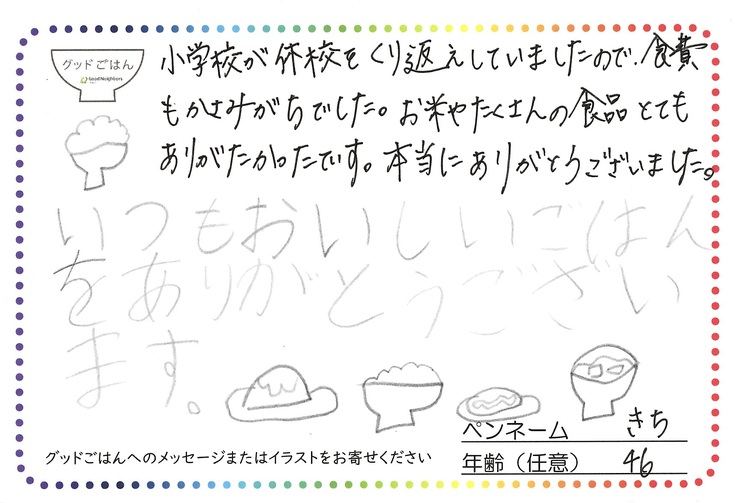 グッドごはん
Good Neighbors
小学校が休校をくり返えしていましたので、食費
もかさみがちでした。お米やたくさんの食品とても
ありがたかったです。本当にありがとうございました。
いつもおいしいごはん
をありがとうござい
ます。
ペンネーム きち
グッドごはんへのメッセージまたはイラストをお寄せください
年齢（任意） 46